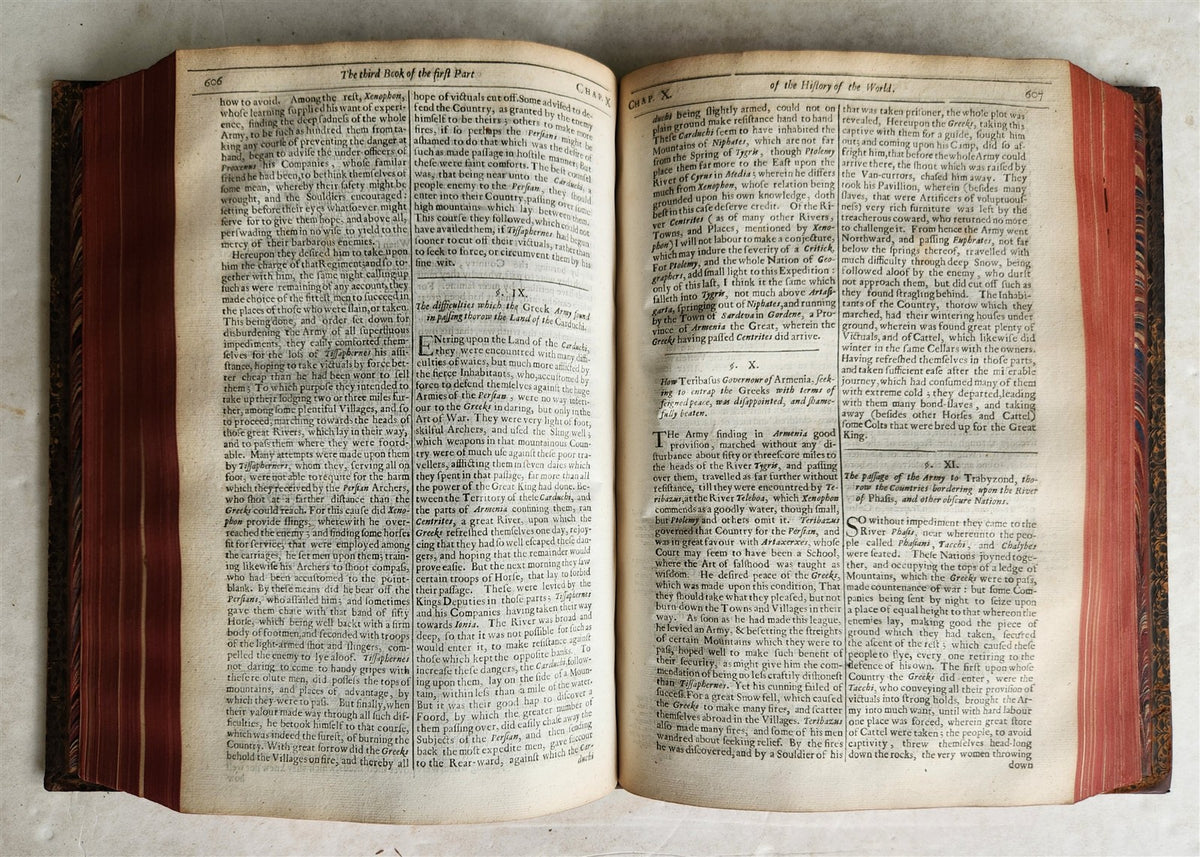 606
The third Book of the first Part
CHAP. X
how to avoid. Among the rest, Xenophon,
whose learning supplied his want of experi-
ence, finding the deep sadness of the whole
Army, to be such as hindred them from ta-
king any course of preventing the danger at
hand, began to advise the under-officers of
Proxenus his Companies, whose familiar
friend he had been, to bethink themselves of
some mean, whereby their safety might be
wrought, and the Souldiers encouraged:
setting before their eyes whatsoever might
serve for to give them hope, and above all,
perswading them in no wise to yield to the
mercy of their barbarous enemies.
Hereupon they desired him to take upon
him the charge of that Regiment; and so to-
gether with him, the same night calling up
such as were remaining of any account, they
made choice of the fittest men to succeed in
the places of those who were slain, or taken.
This being done, and order set down for
disburdening the Army of all superfluous
impediments, they easily comforted them-
selves for the loss of Tissaphernes his assi-
stance, hoping to take victuals by force bet-
ter cheap than he had been wont to sell
them; To which purpose they intended to
take up their lodging two or three miles fur-
ther, among some plentiful Villages, and so
to proceed, marching towards the heads of
those great Rivers, which lay in their way,
and to pass them where they were foord-
able. Many attempts were made upon them
by Tissaphernes, whom they, serving all on
foot, were not able to requite for the harm
which they received by the Persian Archers,
who shot at a farther distance than the
Greeks could reach. For this cause did Xeno-
phon provide slings, wherewith he over-
reached the enemy; and finding some horses
fit for service, that were employed among
the carriages, he set men upon them; train-
ing likewise his Archers to shoot compass,
who had been accustomed to the point-
blank. By these means did he bear off the
Persians, who assailed him; and sometimes
gave them chase with that band of fifty
Horse, which being well backt with a firm
body of footmen, and seconded with troops
of the light-armed shot and slingers, com-
pelled the enemy to lye aloof. Tissaphernes
not daring to come to handy gripes with
these resolute men, did possess the tops of
mountains, and places of advantage, by
which they were to pass. But finally, when
their valour made way through all such dif-
ficulties, he betook himself to that course,
which was indeed the surest, of burning the
Country. With great sorrow did the Greeks
behold the Villages on fire, and thereby all
hope of victuals cut off. Some advised to de-
fend the Country, as granted by the enemy
himself to be theirs; others to make more
fires, if so perhaps the Persians might be
ashamed to do that which was the desire of
such as made passage in hostile manner: But
these were faint comforts. The best counsel
was, that being near unto the Carduchi, a
people enemy to the Persian, they should
enter into their Country, passing over some
high mountains which lay between them.
This course they followed, which could not
have availed them, if Tissaphernes had begun
sooner to cut off their victuals, rather than
to seek to force, or circumvent them by his
fine wit.
§. IX.
The difficulties which the Greek Army found
in passing thorow the Land of the Carduchi.
ENtring upon the Land of the Carduchi,
they were encountred with many diffi-
culties of waies, but much more afflicted by
the fierce Inhabitants, who, accustomed by
force to defend themselves against the huge
Armies of the Persian, were no way inferi-
our to the Greeks in daring, but only in the
Art of War. They were very light of foot,
skilful Archers, and used the Sling well;
which weapons in that mountainous Coun-
try were of much use against these poor tra-
vellers, afflicting them in seven daies which
they spent in that passage, far more than all
the power of the Great King had done. Be-
tween the Territory of these Carduchi, and
the parts of Armenia confining them, ran
Centrites, a great River, upon which the
Greeks refreshed themselves one day, rejoy-
cing that they had so well escaped these dan-
gers, and hoping that the remainder would
prove easie. But the next morning they saw
certain troops of Horse, that lay to forbid
their passage. These were levied by the
Kings Deputies in those parts; Tissaphernes
and his Companies having taken their way
towards Ionia. The River was broad and
deep, so that it was not possible for such as
would enter it, to make resistance against
those which kept the opposite banks. To
increase these dangers, the Carduchi follow-
ing upon them, lay on the side of a Moun-
tain, within less than a mile of the water.
But it was their good hap to discover a
Foord, by which the greater number of
them passing over, did easily chase away the
Subjects of the Persian, and then sending
back the most expedite men, gave succour
to the Rear-ward, against which the Car-
duchi
CHAP. X.
of the History of the World.
607
duchi being slightly armed, could not on
plain ground make resistance hand to hand
These Carduchi seem to have inhabited the
Mountains of Niphates, which are not far
from the Spring of Tygris, though Ptolomy
place them far more to the East upon the
River of Cyrus in Media; wherein he differs
much from Xenophon, whose relation being
grounded upon his own knowledge, doth
best in this case deserve credit. Of the Ri-
ver Centrites (as of many other Rivers,
Towns, and Places, mentioned by Xeno-
phon) I will not labour to make a conjecture,
which may indure the severity of a Critick.
For Ptolomy, and the whole Nation of Geo-
graphers, add small light to this Expedition:
only of this last, I think it the same which
falleth into Tygris, not much above Artasi-
garta, springing out of Niphates, and running
by the Town of Sardeva in Gordene, a Pro-
vince of Armenia the Great, wherein the
Greeks having passed Centrites did arrive.
§. X.
How Teribasus Governour of Armenia, seek-
ing to entrap the Greeks with terms of
feigned peace, was disappointed, and shame-
fully beaten.
THe Army finding in Armenia good
provision, marched without any di-
sturbance about fifty or threescore miles to
the heads of the River Tygris, and passing
over them, travelled as far further without
resistance, till they were encountred by Te-
ribazus, at the River Teleboa, which Xenophon
commends as a goodly water, though small,
but Ptolomy and others omit it. Teribazus
governed that Country for the Persian, and
was in great favour with Artaxerxes, whose
Court may seem to have been a School,
where the Art of falshood was taught as
wisdom. He desired peace of the Greeks,
which was made upon this condition, That
they should take what they pleased, but not
burn down the Towns and Villages in their
way. As soon as he had made this league,
he levied an Army, & besetting the streights
of certain Mountains which they were to
pass, hoped well to make such benefit of
their security, as might give him the com-
mendation of being no less craftily dishonest
than Tissaphernes. Yet his cunning failed of
success. For a great Snow fell, which caused
the Greeks to make many fires, and scatter
themselves abroad in the Villages. Teribazus
also made many fires, and some of his men
wandred about seeking relief. By the fires
he was discovered, and by a Souldier of his
that was taken prisoner, the whole plot was
revealed. Hereupon the Greeks, taking this
captive with them for a guide, sought him
out; and coming upon his Camp, did so af-
fright him, that before the whole Army could
arrive there, the shout which was raised by
the Van-currors, chased him away. They
took his Pavillion, wherein (besides many
slaves, that were Artificers of voluptuous-
ness) very rich furniture was left by the
treacherous coward, who returned no more
to challenge it. From hence the Army went
Northward, and passing Euphrates, not far
below the springs thereof, travelled with
much difficulty through deep Snow, being
followed aloof by the enemy, who durst
not approach them, but did cut off such as
they found stragling behind. The Inhabi-
tants of the Country, thorow which they
marched, had their wintering houses under
ground, wherein was found great plenty of
Victuals, and of Cattel, which likewise did
winter in the same Cellars with the owners.
Having refreshed themselves in those parts,
and taken sufficient ease after the miserable
journey, which had consumed many of them
with extreme cold; they departed, leading
with them many bond-slaves, and taking
away (besides other Horses and Cattel)
some Colts that were bred up for the Great
King.
§. XI.
The passage of the Army to Trabyzond, tho-
row the Countries bordering upon the River
of Phasis, and other obscure Nations.
SO without impediment they came to the
River Phasis, near whereunto the peo-
ple called Phasiani, Tacchi, and Chalybes
were seated. These Nations joyned toge-
ther, and occupying the tops of a ledge of
Mountains, which the Greeks were to pass,
made countenance of war: but some Com-
panies being sent by night to seize upon
a place of equal height to that whereon the
enemies lay, making good the piece of
ground which they had taken, secured
the ascent of the rest; which caused these
people to flye, every one retiring to the
defence of his own. The first upon whose
Country the Greeks did enter, were the
Tacchi, who conveying all their provision of
victuals into strong holds, brought the Ar-
my into much want, until with hard labour
one place was forced, wherein great store
of Cattel were taken; the people, to avoid
captivity, threw themselves head-long
down the rocks, the very women throwing
down